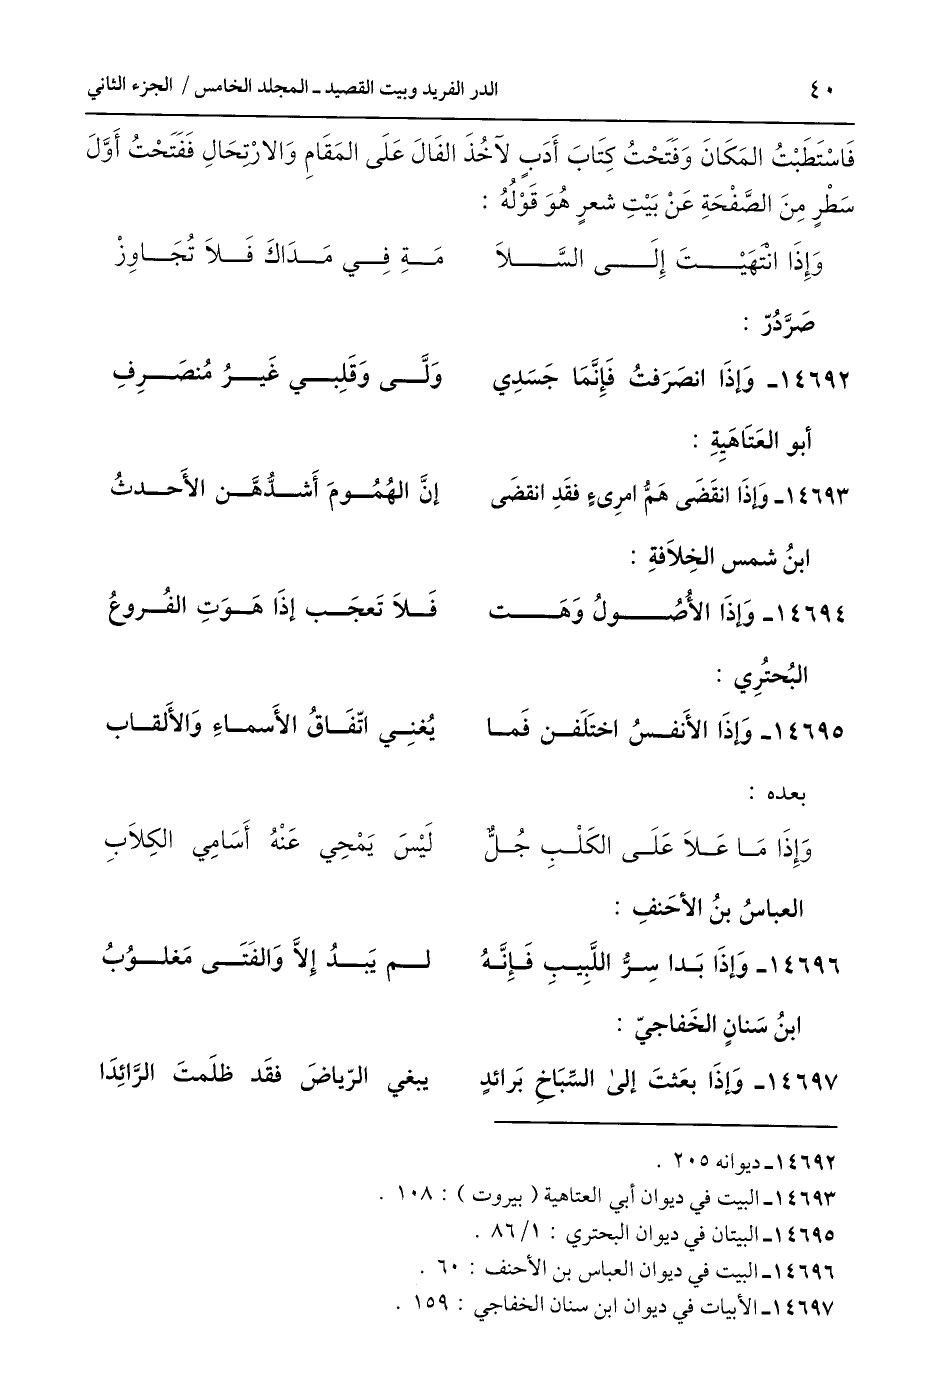 ٤٠ الدر الفريد وبيت القصيد ـ المجلد الخامس / الجزء الثاني
فَاسْتَطَبْتُ المَكَانَ وَفَتَحْتُ كِتَابَ أَدَبٍ لآخُذَ الفَالَ عَلَى المَقَامِ وَالارْتِحَالِ فَفَتَحْتُ أَوَّلَ
سَطْرٍ مِنَ الصَّفْحَةِ عَنْ بَيْتِ شعرٍ هُوَ قَوْلُهُ :
وَإِذَا انْتَهَيْتَ إِلَى السَّلاَ مَةِ فِي مَدَاكَ فَلاَ تُجَاوِزْ
صَرَّدُرّ :
١٤٦٩٢ـ وَإِذَا انصَرَفتُ فَإِنَّمَا جَسَدِي وَلَّى وَقَلِبي غَيرُ مُنصَرِفِ
أبو العَتَاهَيِةِ :
١٤٦٩٣ـ وَإِذَا انقَضَى هَمُّ امرِىءٍ فقَدِ انقضَى إنَّ الهُمُومَ أَشدُّهَّن الأَحدثُ
ابنُ شمس الخِلاَفةِ :
١٤٦٩٤ـ وَإِذَا الأُصُولُ وَهَت فَلاَ تَعجَب إذَا هَوَتِ الفُروعُ
البُحتُرِي :
١٤٦٩٥ـ وَإِذَا الأَنفسُ اختَلَفن فَما يُغنِي اتّفَاقُ الأَسماءِ وَالأَلقاب
بعده :
وَإِذَا مَا عَلاَ عَلَى الكَلْبِ جُلٌّ لَيْسَ يَمْحِي عَنْهُ أَسَامِي الكِلاَبِ
العباسُ بنُ الأحَنفِ :
١٤٦٩٦ـ وَإذَا بَدا سِرُّ اللَّبِيبِ فَإِنَّهُ لم يَبدُ إلاَّ وَالفَتَى مَغلوُبُ
ابنُ سَنانٍ الخَفاجيّ :
١٤٦٩٧ـ وَإِذَا بعَثتَ إلىٰ السِّبَاخِ بَرائدٍ يبغي الرّياضَ فقَد ظلَمتَ الرَّائِدَا
١٤٦٩٢ـ ديوانه ٢٠٥ .
١٤٦٩٣ـ البيت في ديوان أبي العتاهية ( بيروت ) : ١٠٨ .
١٤٦٩٥ـ البيتان في ديوان البحتري : ١/ ٨٦ .
١٤٦٩٦ـ البيت في ديوان العباس بن الأحنف : ٦٠ .
١٤٦٩٧ـ الأبيات في ديوان ابن سنان الخفاجي : ١٥٩ .